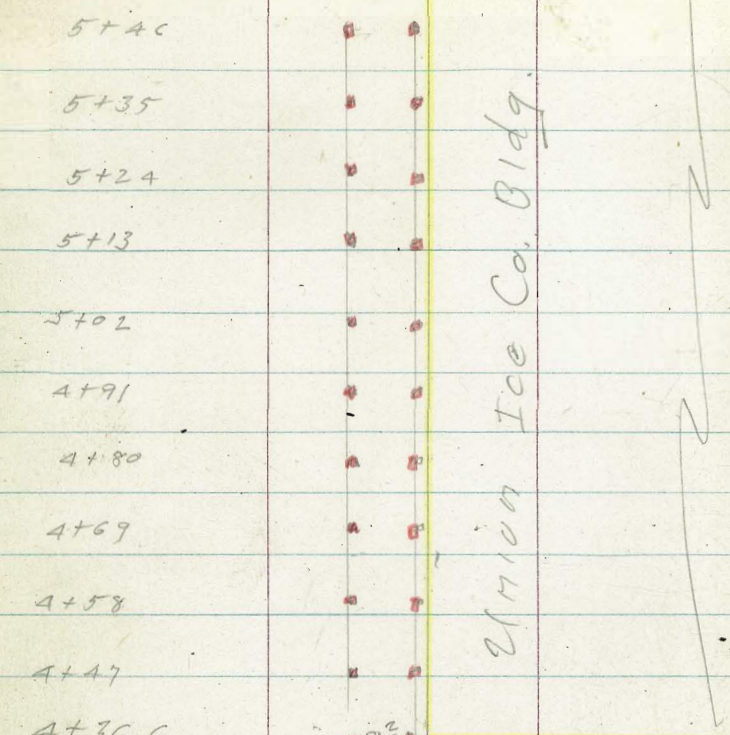 5+46
5+35
5+24
5+13
5+02
4+91
4+80
4+69
4+58
4+47
Union Ice Co. Bldg.